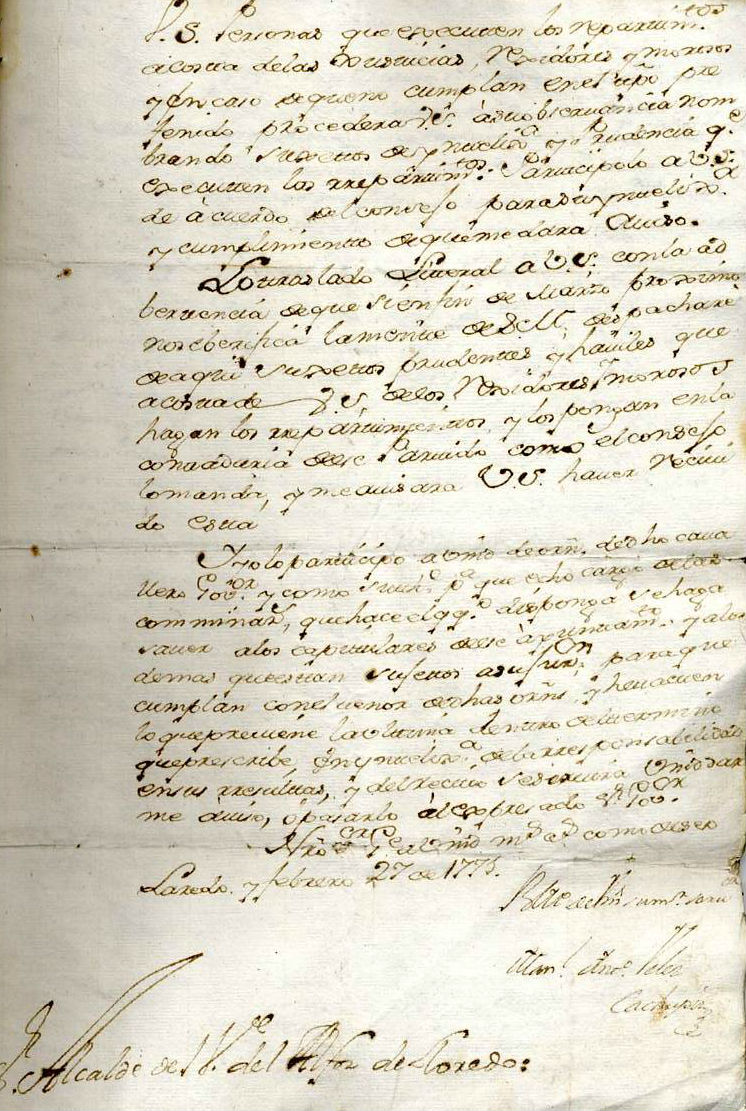 V. S. Personas que executen los repartim.tos
a costa delas Justicias, Rexidores y morosos
y en caso de que no cumplan en el tpo pre
fenido procedera V.S. à su observancia nom
brando suxetos de ynteliz.a y Prudencia q.e
executen los rrepartim.tos. Participolo a V.S.
de àcuerdo del consejo para su ynteliz.a
y cumplimiento de que me dara Aviso.
Lo traslado Literal a V.S. con la ad
bertencia de que si en fin de Marzo proximo
no se berifica la mente de S.M. despacharè
de aqui suxetos prudentes y haviles que
a costa de V.S. delos Rexidores y morosos
hagan los rrepartimientos y los pongan en la
contaduria de ese Partido como el consejo
lo manda, y me avisara V.S. haver recivi
do esta
Y yo lo participo a Vmd de orn. de dho cava
llero Gov.or y como p.a que echo cargo de las
comminaz.s, que hace el q.e disponga se haga
saver a los capitulares de ese àyuntam.to y a los
demas que estan sujetos a su Jur.on para que
cumplan con el tenor de dhas òrns, y hevacuen
lo que previene la ultima dentro del termino
que prescribe, en ynteliz.a de la rresponsabilidad
en sus rresultas, y del recivo se servirà Vmd dar
me àviso, o pasarlo àl expresado S.r Gov.or
Nro S.or G.e a Vmd m.s a.s como deseo
Laredo y febrero 27 de 1775.
B l m de Vm su m.r serv.or
Man.l Ant.o Velez
Cachupin
S.r Alcalde de l V.e del Alfoz de Lloredo: